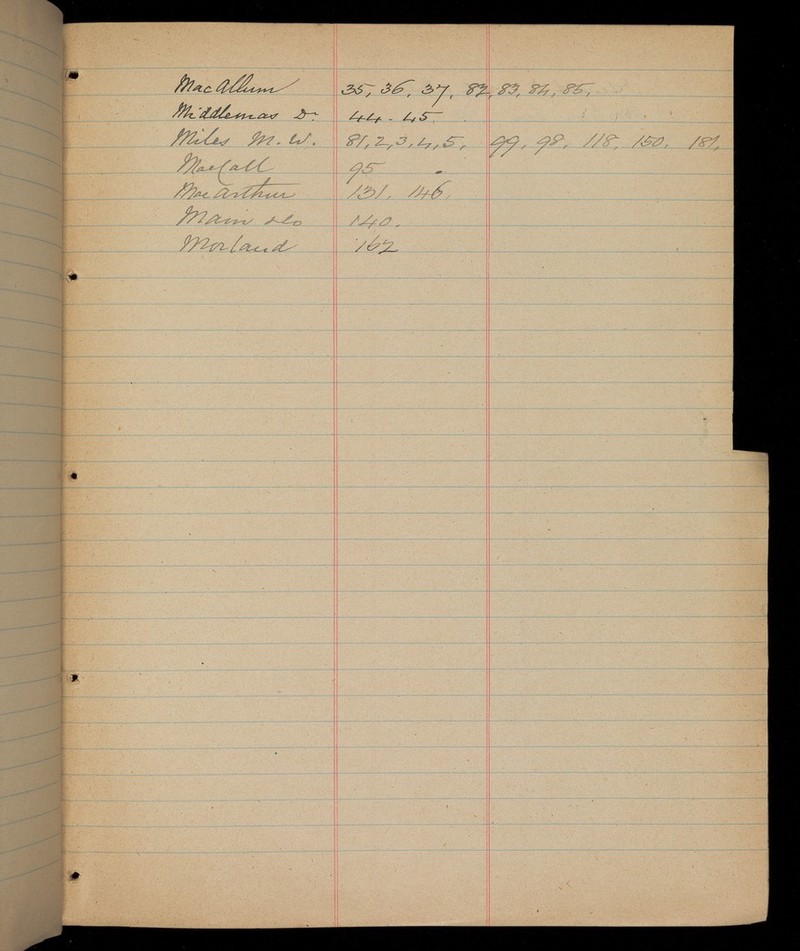 MacAllum 35, 36, 37, 82, 83, 84, 85,
Middlemas Dr 44-45
Miles M.W. 81, 2, 3, 4, 5, 99, 98, 118, 150, 181,
MacCall 95
MacArthur 131, 146,
Main 140.
Morland 162